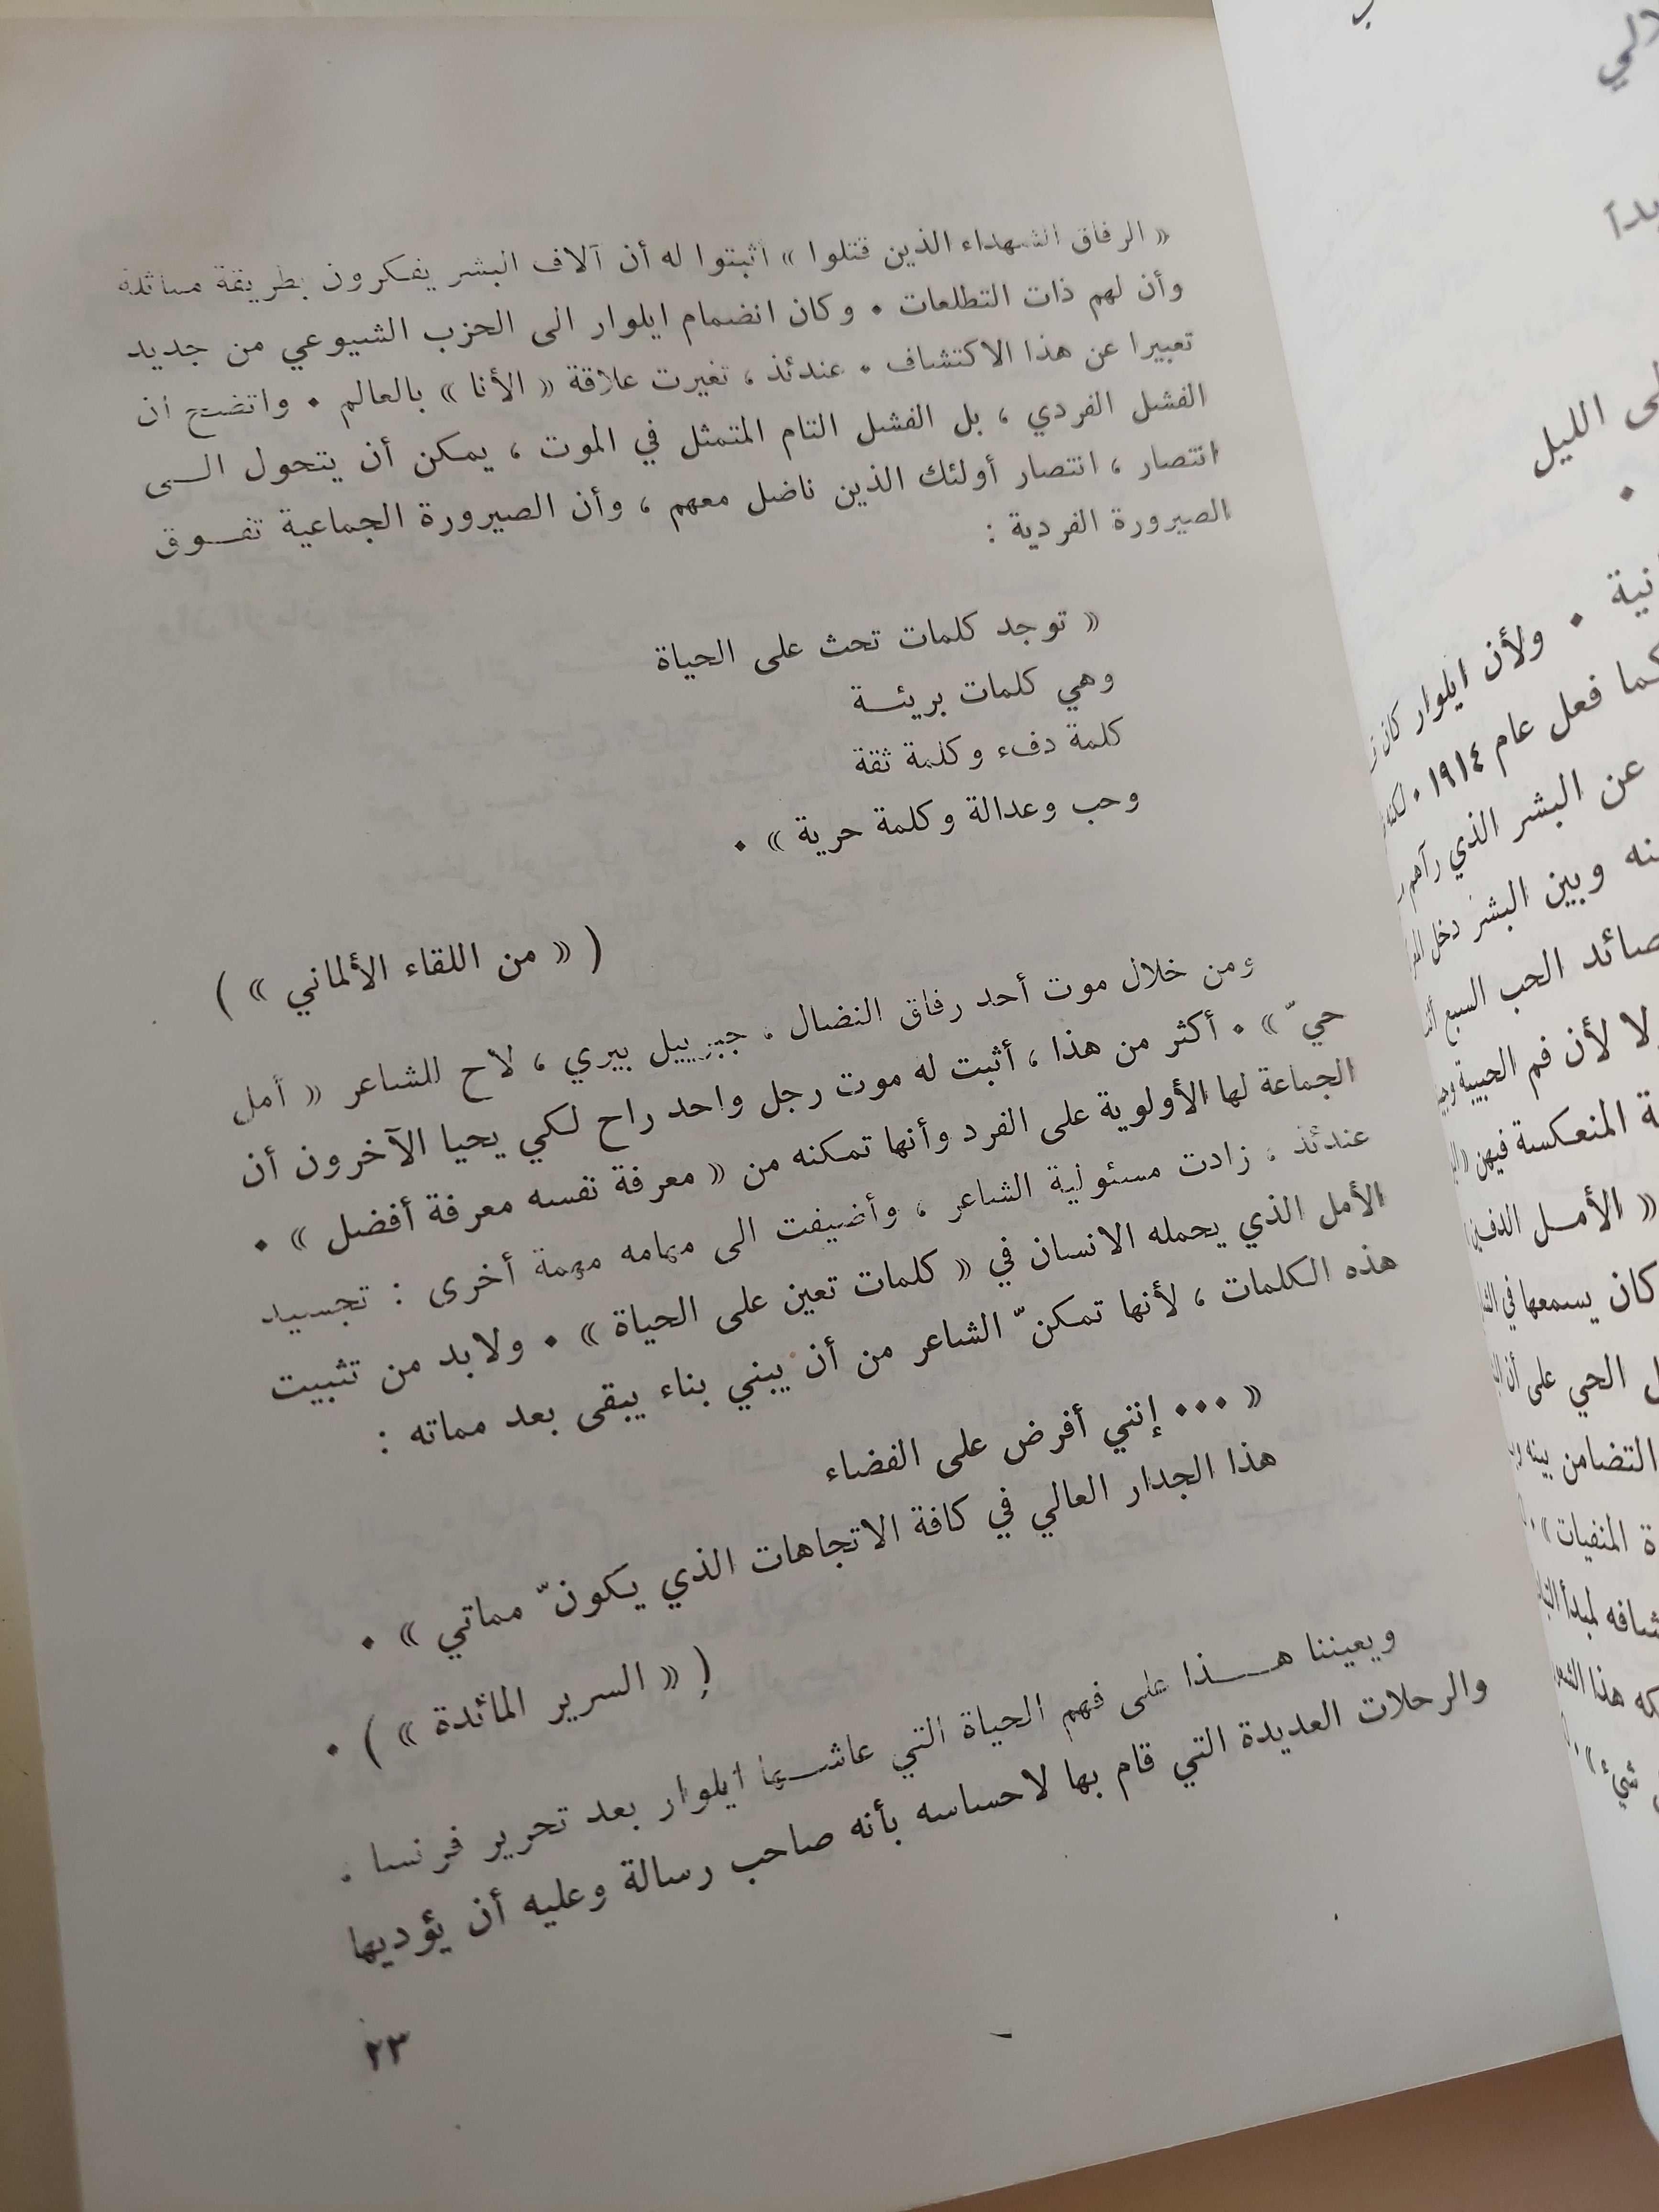 « الرفاق الشهداء الذين قتلوا » أثبتوا له أن آلاف البشر يفكرون بطريقة مماثلة
وأن لهم ذات التطلعات . وكان انضمام ايلوار الى الحزب الشيوعي من جديد
تعبيرا عن هذا الاكتشاف . عندئذ ، تغيرت علاقة « الأنا » بالعالم . واتضح أن
الفشل الفردي ، بل الفشل التام المتمثل في الموت ، يمكن أن يتحول الــى
انتصار ، انتصار أولئك الذين ناضل معهم ، وأن الصيرورة الجماعية تفــوق
الصيرورة الفردية :
« توجد كلمات تحث على الحياة
وهي كلمات بريئــة
كلمة دفء وكلمة ثقة
وحب وعدالة وكلمة حرية » .
( « من اللقاء الألماني » )
ومن خلال موت أحد رفاق النضال ، جبرييل بيري ، لاح للشاعر « أمل
حيّ » . أكثر من هذا ، أثبت له موت رجل واحد راح لكي يحيا الآخرون أن
الجماعة لها الأولوية على الفرد وأنها تمكنه من « معرفة نفسه معرفة أفضل » .
عندئذ ، زادت مسئولية الشاعر ، وأضيفت الى مهامه مهمة أخرى : تجسيد
الأمل الذي يحمله الانسان في « كلمات تعين على الحياة » . ولابد من تثبيت
هذه الكلمات ، لأنها تمكنّ الشاعر من أن يبني بناء يبقى بعد مماته :
« ... إنني أفرض على الفضاء
هذا الجدار العالي في كافة الاتجاهات الذي يكونّ مماتي » .
( « السرير المائدة » ) .
ويعيننا هــذا على فهم الحياة التي عاشــها ايلوار بعد تحرير فرنسا .
والرحلات العديدة التي قام بها لاحساسه بأنه صاحب رسالة وعليه أن يؤديها
٢٣
ى الليل
ولأن ايلوار كان
كما فعل عام ١٩١٤ .
عن البشر الذي رآهم
وبين البشر دخل
الحب السبع
لا لأن فم الحبيبة
المنعكسة فيهن
« الأمــل
كان يسمعها في
الحي على أن
التضامن بينه
المنفيات » .
هذا
شيء » .